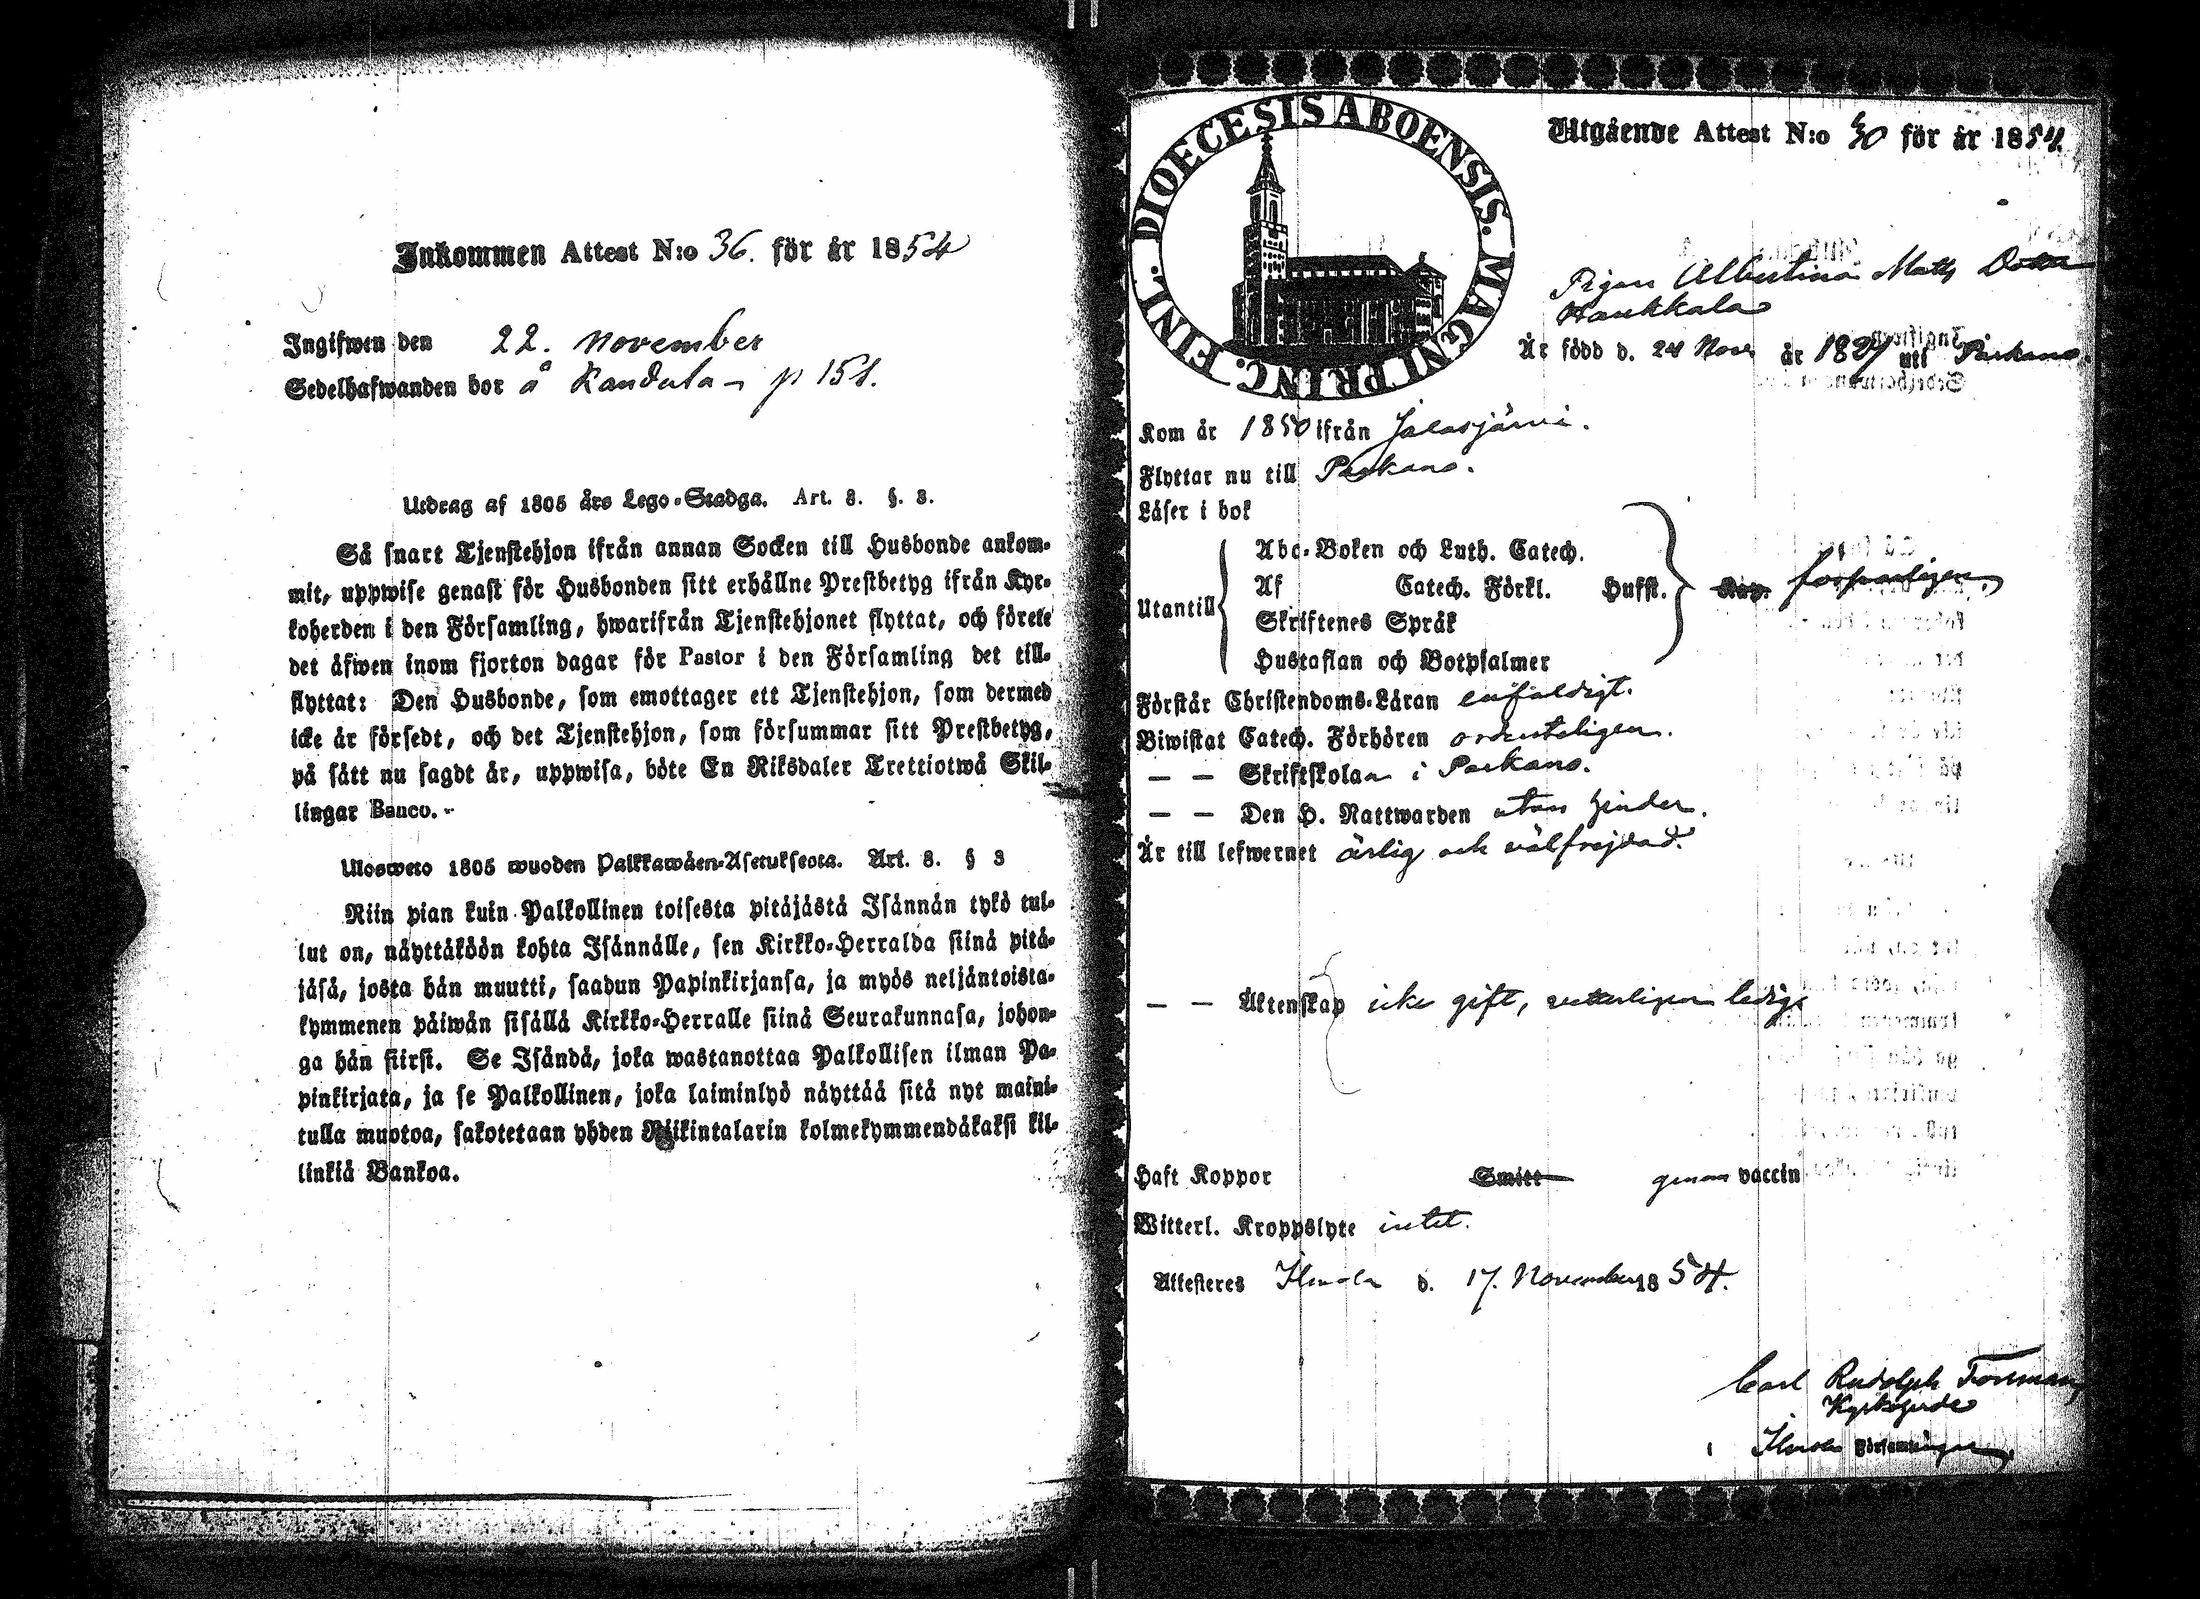 Inkommen Attest N:o 36. för år 1854
Ingifwen den 22. november
Sedelhafwanden bor å Kandula p 151.
Utdrag af 1805 års Lego-Stadga. Art. 8. §. 3.
Så snart Tjenstehjon ifrån annan Socken till Husbonde ankom-
mit, uppwise genast för Husbonden sitt erhållne Prestbetyg ifrån Kyr-
koherden i den Församling, hwarifrån Tjenstehjonet flyttat, och förete
det äfwen inom fjorton dagar för Pastor i den Församling det till-
flyttat: Den Husbonde, som emottager ett Tjenstehjon, som dermed
icke är försedt, och det Tjenstehjon, som försummar sitt Prestbetyg,
på sätt nu sagdt är, uppwisa, böte En Riksdaler Trettiotwå Skil-
lingar Banco.
Ulosweto 1805 wuoden Palkkawäen-Asetuksesta. Art. 8. § 3
Niin pian kuin Palkollinen toisesta pitäjästä Isännän tykö tul-
lut on, näyttäköön kohta Isännälle, sen Kirkko-Herralda siinä pitä-
jäsä, josta hän muutti, saadun Papinkirjansa, ja myös neljäntoista-
kymmenen päiwän sisällä Kirkko-Herralle siinä Seurakunnasa, johon-
ga hän siirsi. Se Isändä, joka wastanottaa Palkollisen ilman Pa-
pinkirjata, ja se Palkollinen, joka laiminlyö näyttää sitä nyt maini-
tulla muotoa, sakotetaan yhden Riikintalarin kolmekymmendäkaksi kil-
linkiä Bankoa.
DIOECESIS ABOENSIS. MAGNI PRINC. FINL.
Utgående Attest N:o 30 för år 1854.
Pigan Albertina Matts Dotter
Haukkala
Är född d. 24 Nov. år 1827 uti Parkano.
Kom år 1850 ifrån Jalasjärvi.
Flyttar nu till Parkano.
Läser i bok
Utantill
Abc-Boken och Luth. Catech.
Af Catech. Förkl. Hufst.
Skriftenes Språk
Hustaflan och Botpsalmer
försvarligen
Förstår Christendoms-Läran enfaldigt.
Biwistat Catech. Förhören ordenteligen.
— — Skriftskolan i Parkano.
— — Den H. Nattwarden utan hinder.
Är till lefwernet ärlig och välfrejdad.
— — Äktenskap icke gift, vetterligen ledig
Haft Koppor Smitt genom vaccin
Witterl. Kroppslyte intet.
Attesteres Ilmola d. 17. November 1854.
Carl Rudolph Forsman
Kyrkoherde
i Ilmola Församlingen.